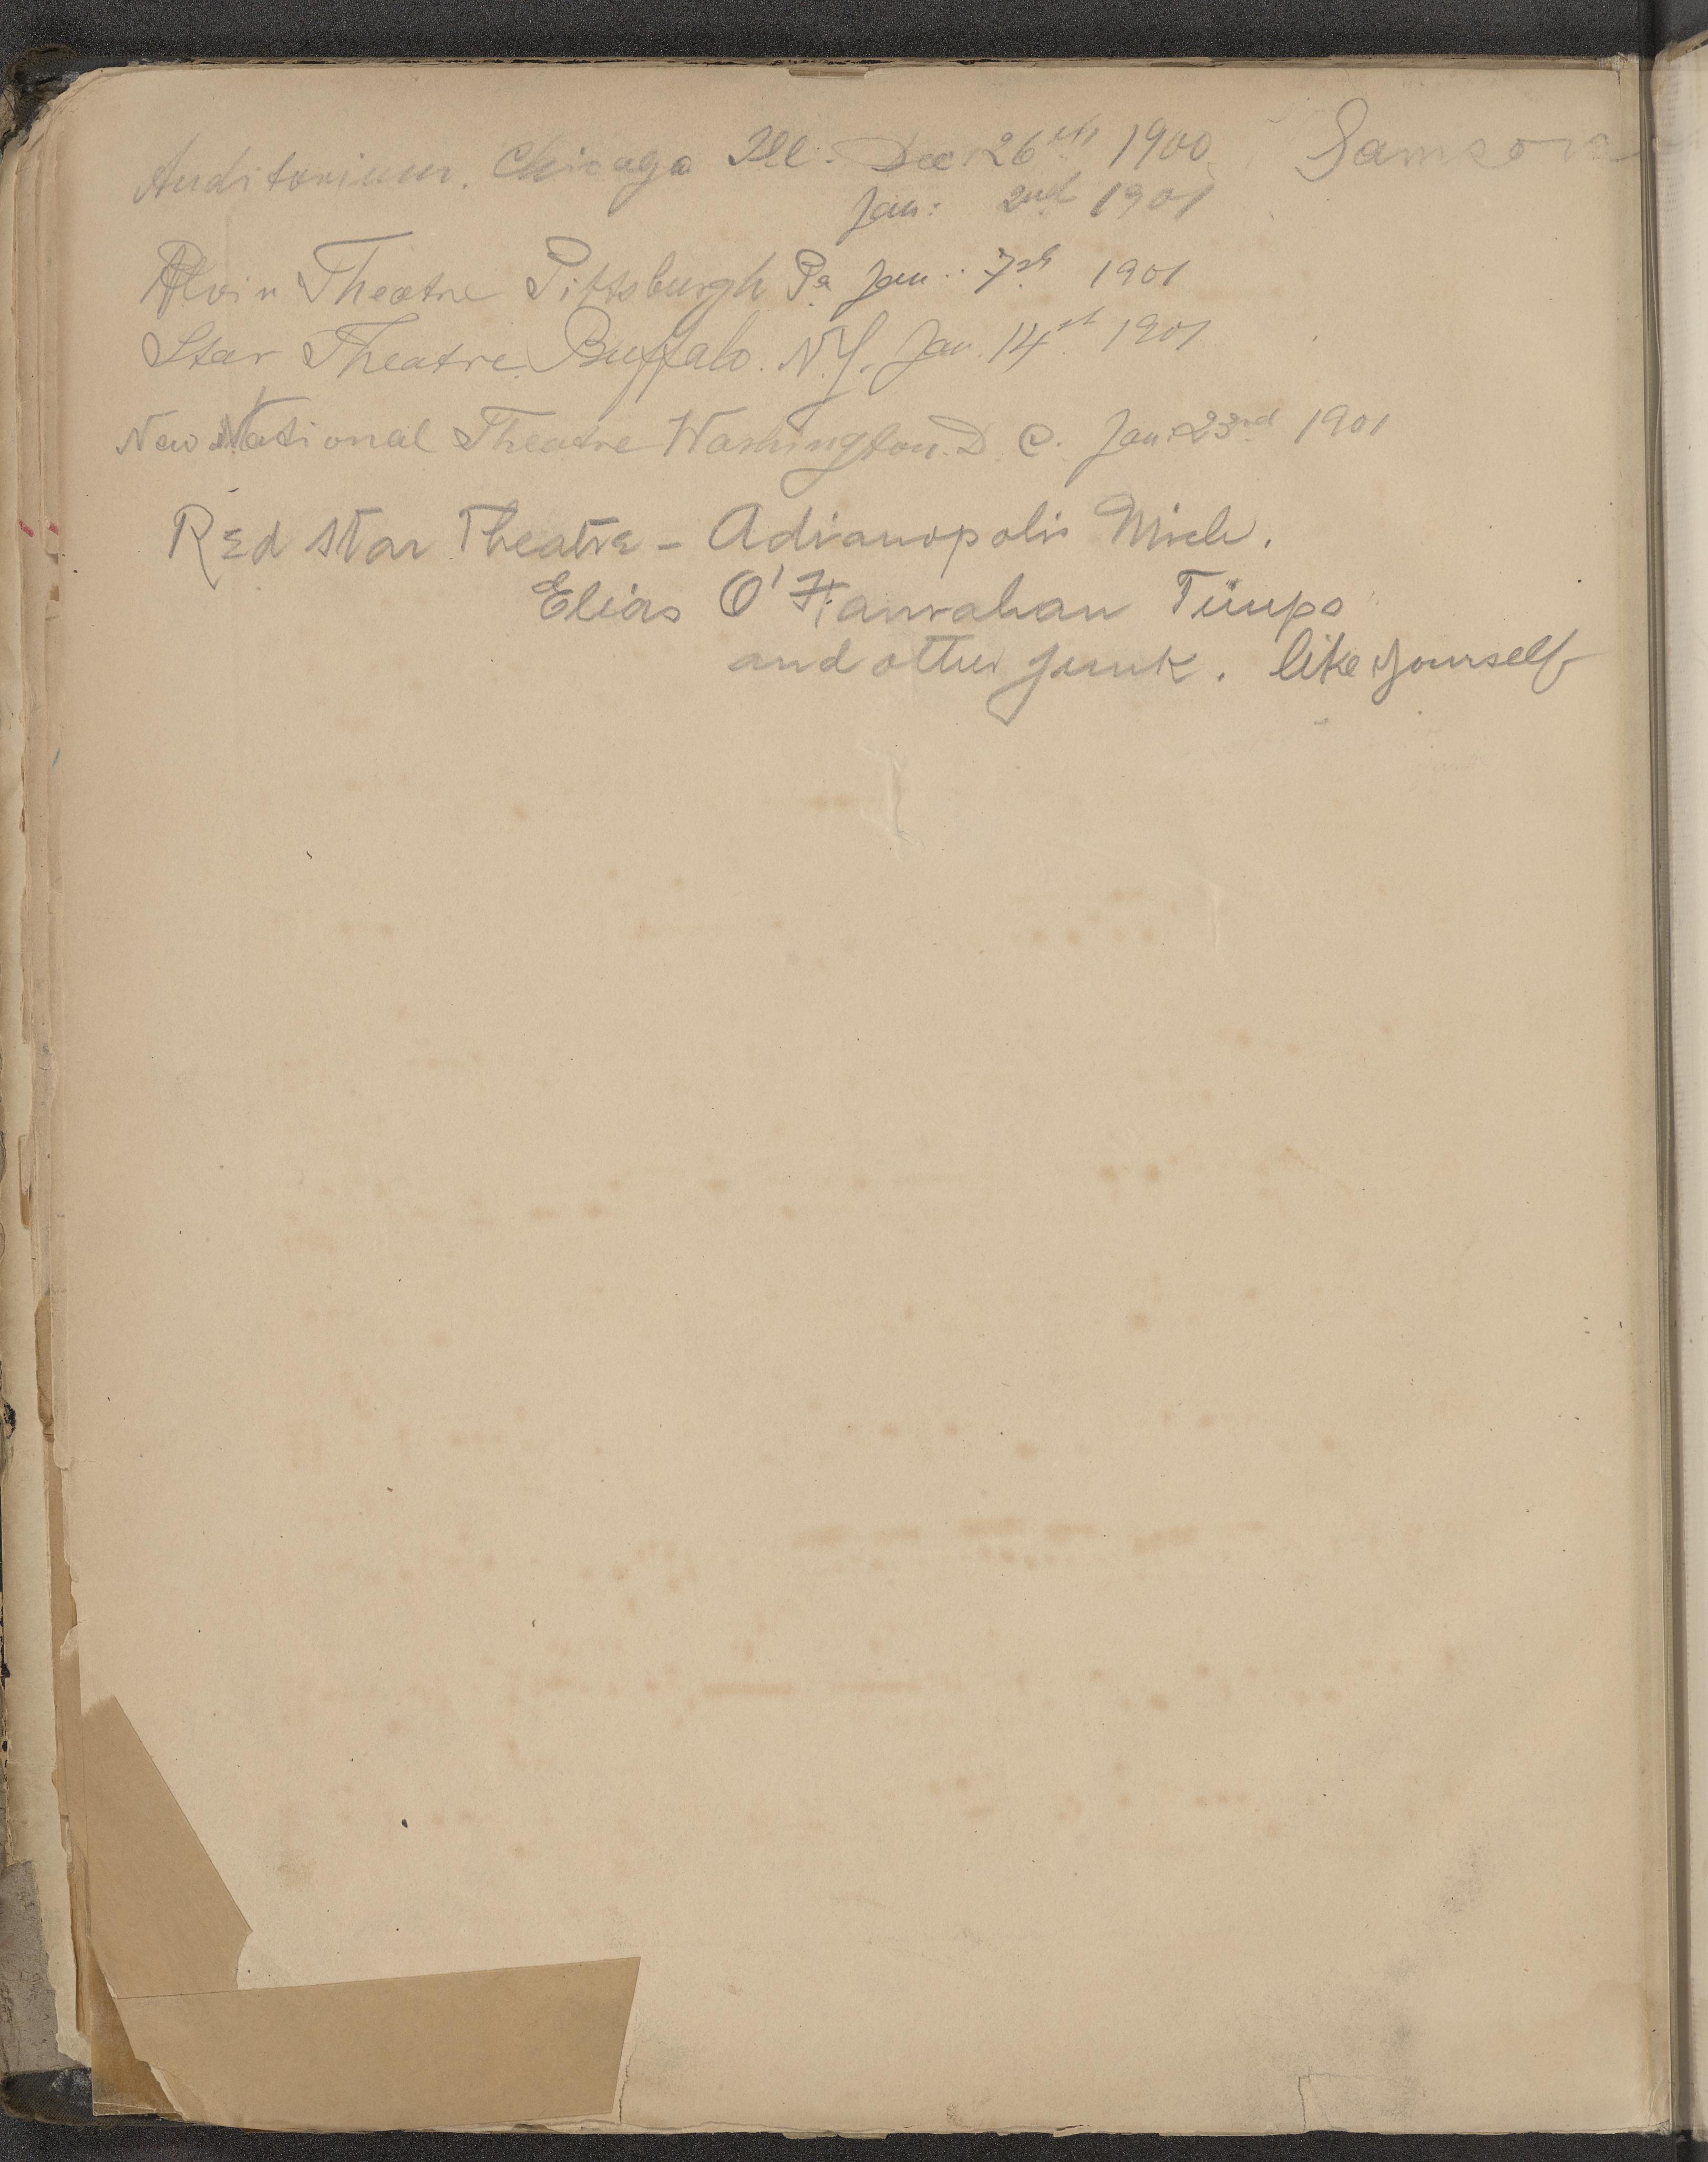 Auditorium. Chicago Ill. Dec 26th 1900. Samson
Jan: 2nd 1901
Alvin Theatre Pittsburgh Pa Jan.. 7th 1901
Star Theatre. Buffalo. N.Y. Jan. 14th 1901
New National Theatre Washington. D. C. Jan: 23rd 1901
Red Star Theatre - Adianopolis Mich.
Elias O'Hanrahan
and other junk. like yourself